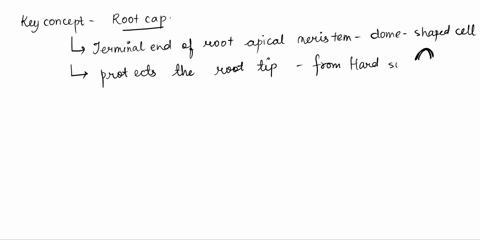 Key concept - Root cap.
↳ Terminal end of root apical meristem - dome-shaped cell
↳ protects the root tip - from Hard